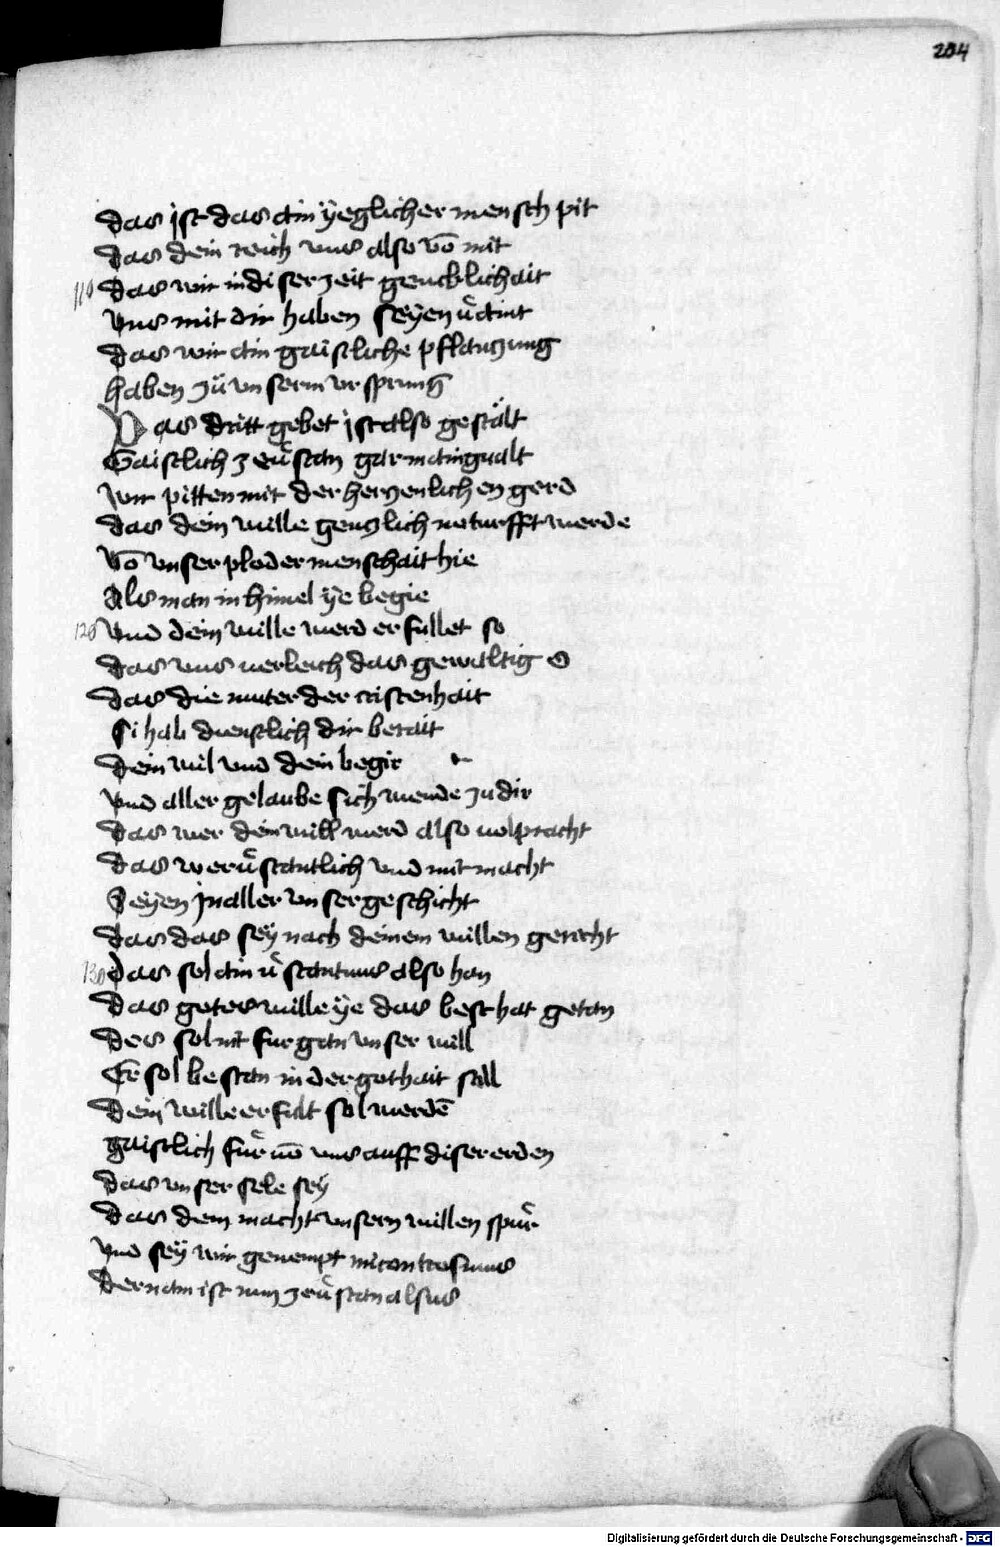 204
Das ist das ain yeglicher mensch pit
das dein reich uns also vō mit
110 das wir in diser zeit gencklichait
Uns mit dir haben seyen
das wir ain gaistliche pflanczung
haben zu unserm ursprung
Das dritt gebet ist also gestalt
Gaistlich zeustan gar
Wir pitten mit der herczenlichen gerd
das dein wille genczlich werde
Vō unser ploder menschait hie
Als man in himel ye begie
120 Und dein wille werd erfullet so
das uns verleich das gewaltig O
das die muter der cristenhait
si hab dienstlich dir berait
dein will und dein begir
Und aller gelaube sich wende zu dir
das wer dein will werd also volpracht
das wer ustantlich und mit macht
Seyen in aller unser geschicht
das das sey nach deinem willen gericht
130 das sol ain ustantnus also han
das gotes wille ye das best hat getan
des sol nit fur gan unser will
Er sol bestan in der gothait still
dein wille erfult sol werdē
gaistlich fur uns auff diser erden
das unser sele sey
das dein macht unsern willen spur
Und sey wir genempt microcosmus
der nam ist nun zeustan alsus
Digitalisierung gefördert durch die Deutsche Forschungsgemeinschaft - DFG